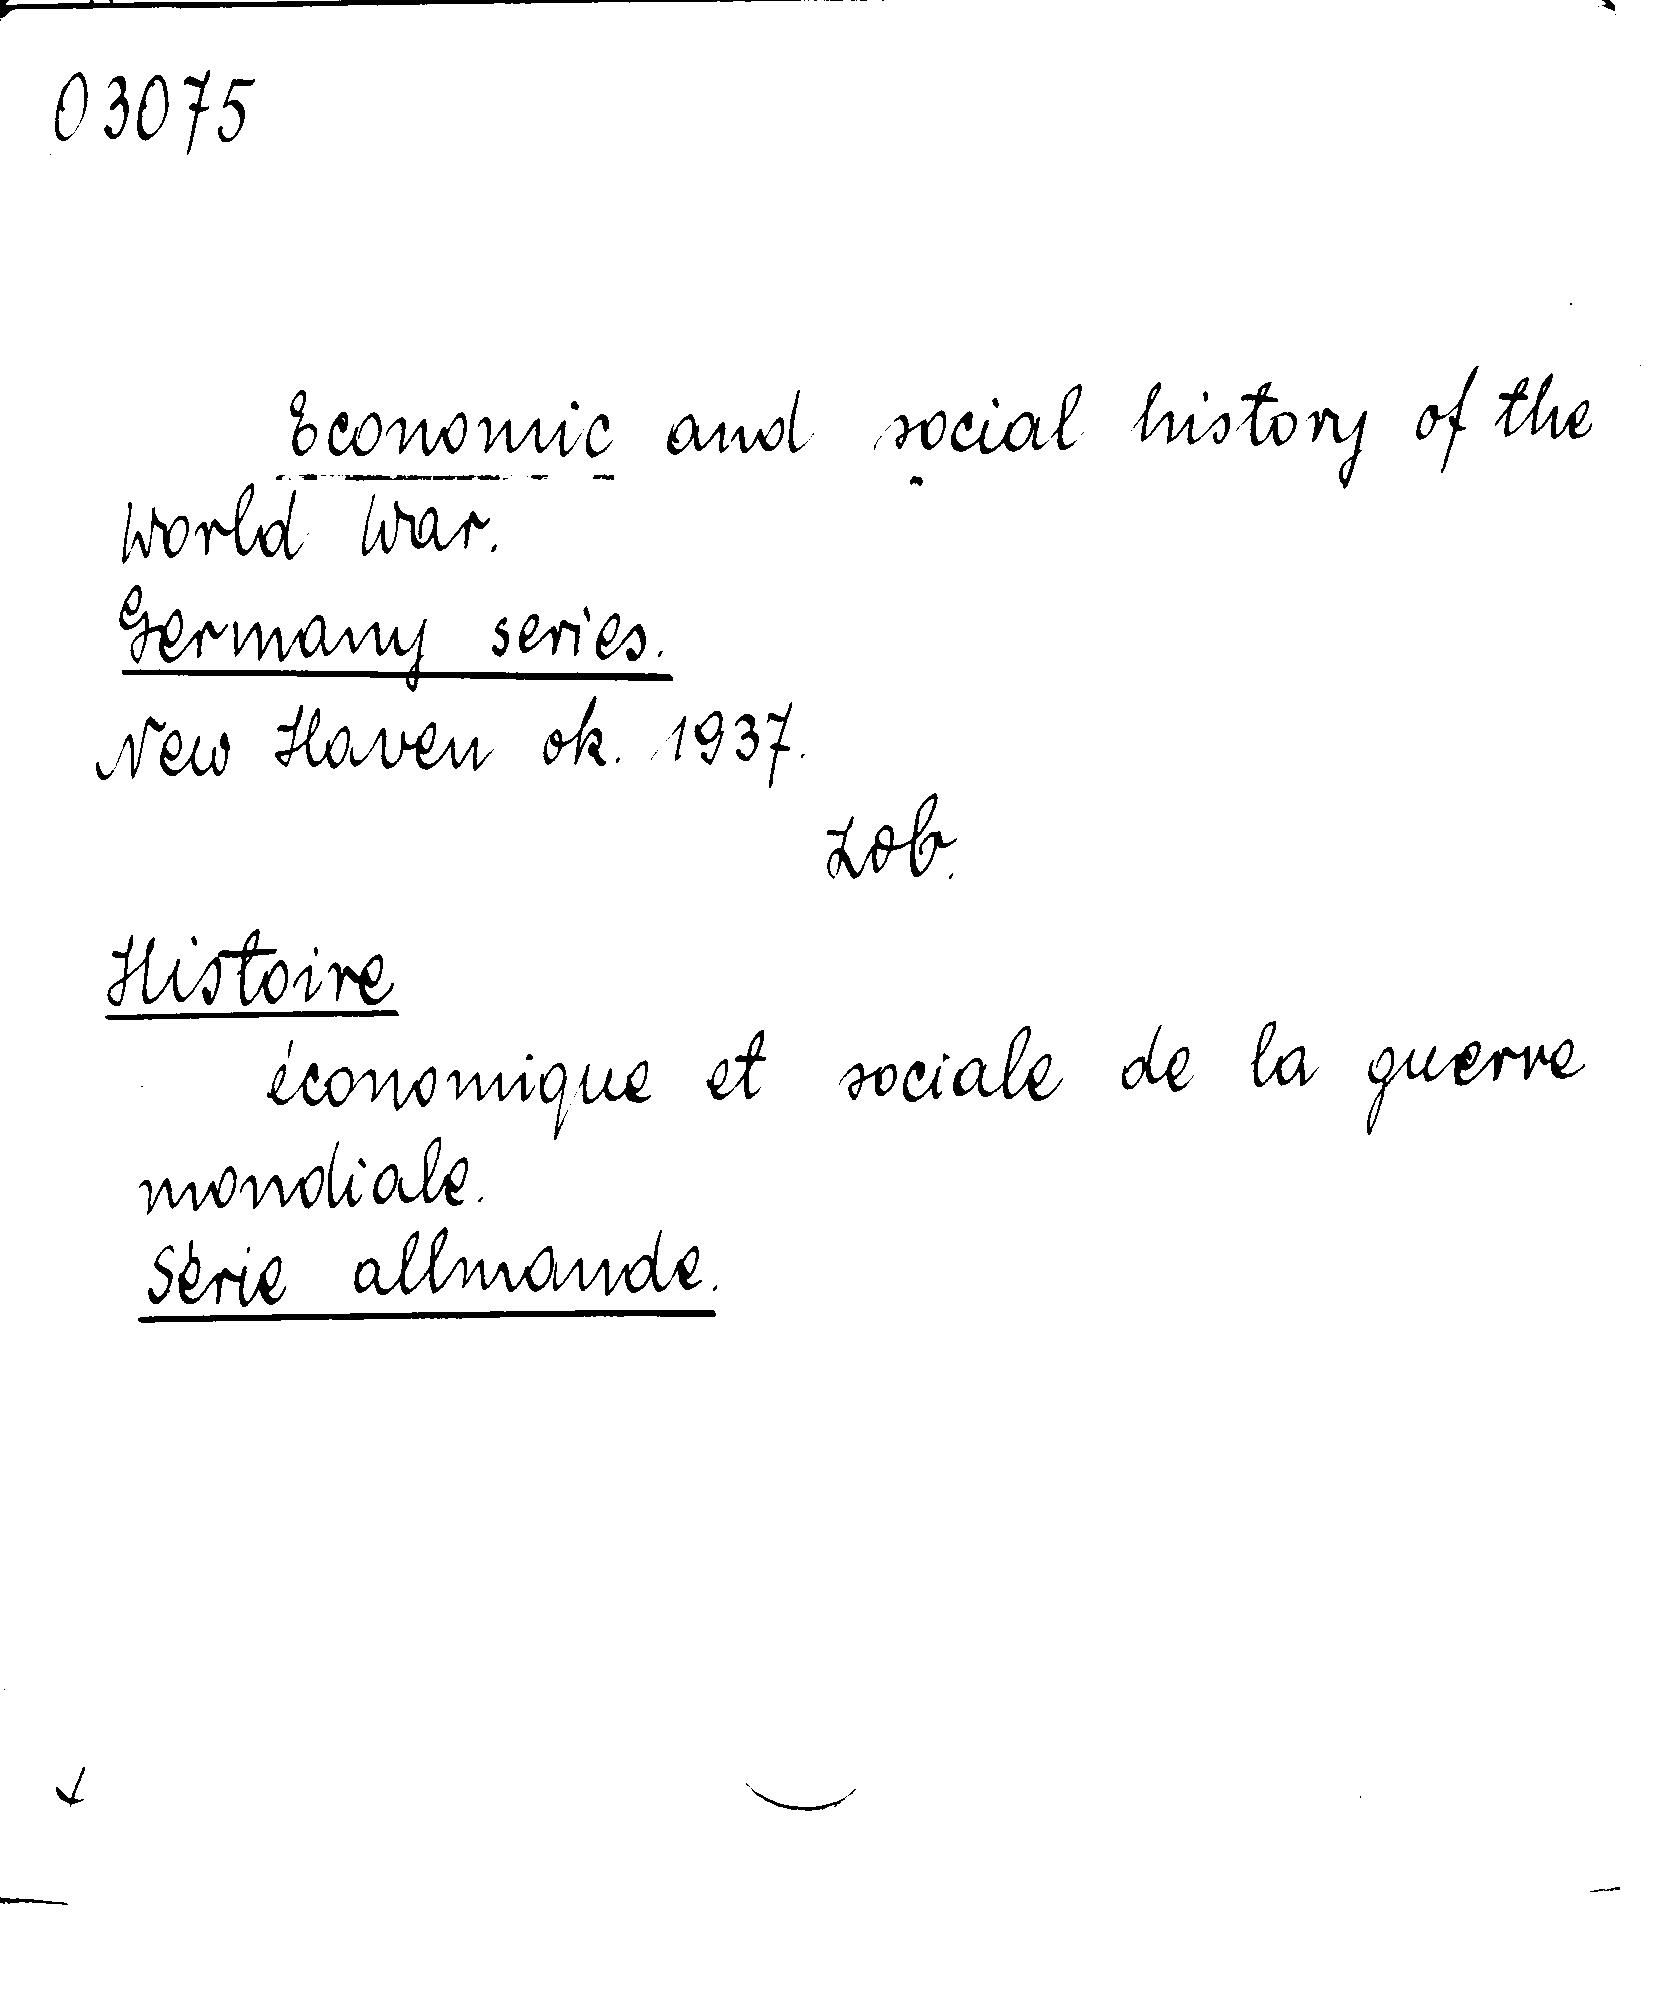 03075
Economic and social history of the
World War.
Germany series.
New Haven ok. 1937.
Zob.
Histoire
économique et sociale de la guerre
mondiale.
Série allmande.